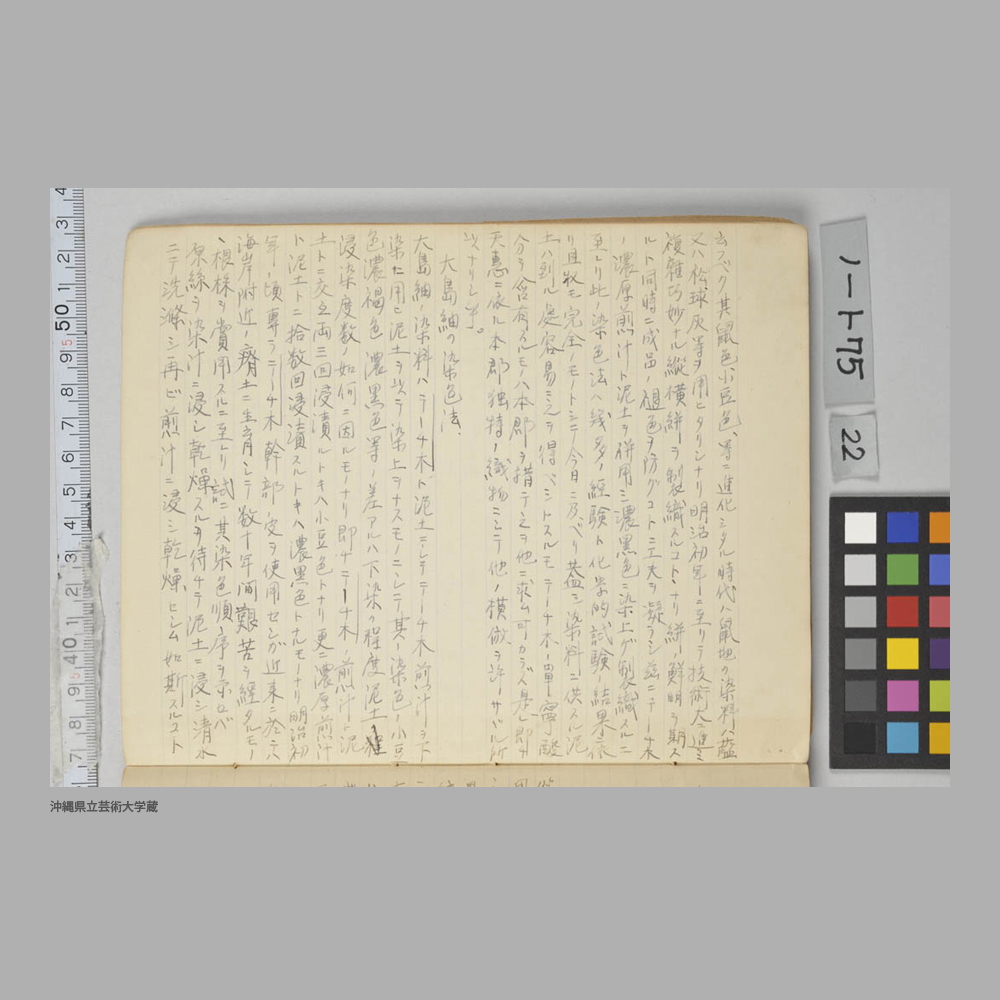 云フベク其鼠色、小豆色、等ニ進化シタル時代ハ鼠地ノ染料ハ藍
又ハ松球灰等ヲ用ヒタリシナリ明治初年ニ至リテ技術大ニ進ミ
複雑巧妙ナル縦横絣ヲ製織スルコトヽナリ絣ノ鮮明ヲ期ス
ルト同時ニ成品ノ褪色ヲ防グコトニ工夫ヲ凝ラシ遂ニテーチ木
ノ濃厚煎汁ト泥土ヲ併用シ濃黒色ニ染上ゲ製織スルニ
至レリ此ノ染色法ハ幾多ノ経験ト化学的試験ノ結果ニ依
リ且牧モ完全ノモノトシテ今日ニ及ベリ蓋シ染料ニ供スル泥
土ハ到ル處容易ニ之ヲ得ベシトスルモテーチ木ノ單寧酸
分ヲ含有スルモノハ本郡ヲ措テ之ヲ他ニ求ム可カラズ是レ即チ
天惠ニ依ル本郡独特ノ織物ニシテ他ノ模倣ヲ許サヾル所
以ナリレ乎。
大島紬の染色法.
大島紬ノ染料ハテーチ木ト泥土ニシテテーチ木煎汁ヲ下
染ニ用ヒ泥土ヲ以テ染上ヲナスモノニシテ其ノ染色ノ小豆
色濃褐色濃黒色等ノ差アルハ下染ノ程度泥土ノ
浸染度数ノ如何ニ因ルモノナリ即チテーチ木ノ煎汁ト泥
土トニ交互両三回浸漬ルトキハ小豆色トナリ更ニ濃厚煎汁
ト泥土トニ拾数回浸漬スルトキハ濃黒色トナルモノナリ明治初
年ノ頃専ラテーチ木幹部ノ皮ヲ使用センガ近来ニ於テハ
海岸附近ノ瘠土ニ生育シテ数十年間艱苦ヲ經タルモノ
ノ根株ヲ賞用スルニ至レリ試ニ其染色順序ヲ示ロバ
原絲ヲ染汁ニ浸シ乾燥スルヲ待チテ泥土ニ浸シ清水
ニテ洗滌シ再ビ煎汁ニ浸シ乾燥セシム如斯スルコト
ノート75
22
沖縄県立芸術大学蔵